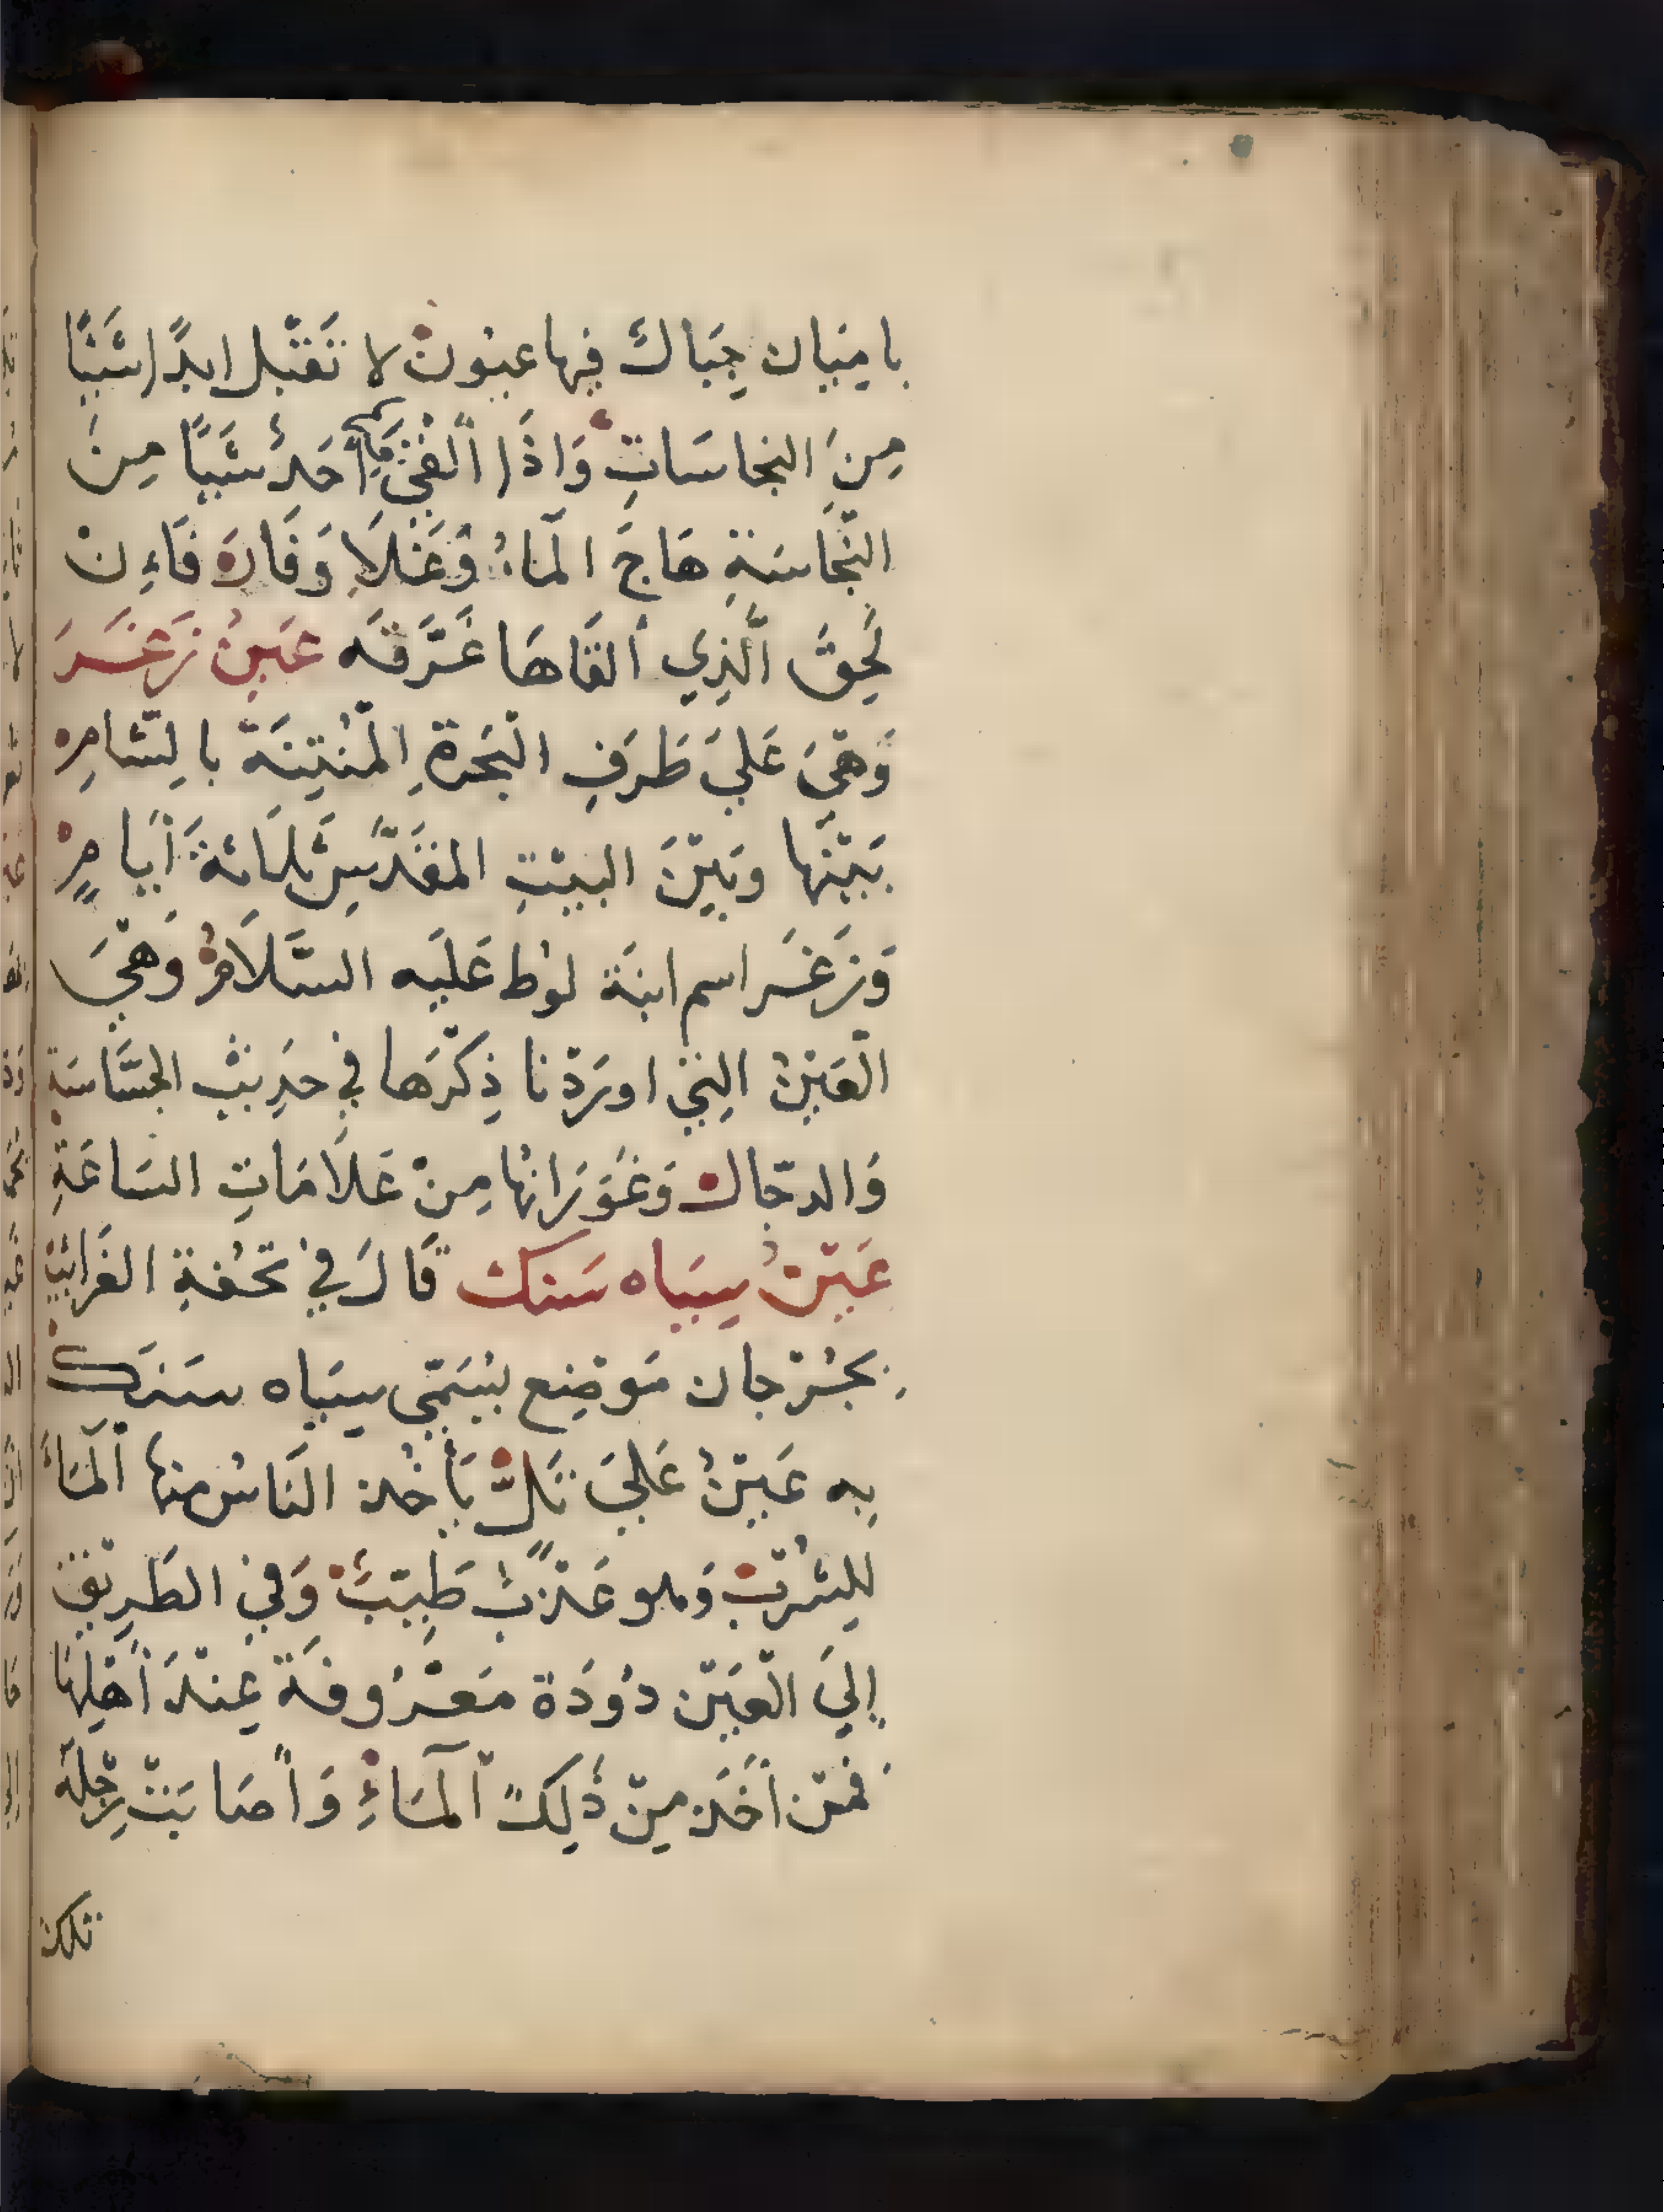 بامِيَان جِبَالٌ فِيها عيُونٌ لا تَقبَل ابدًا شَيًا
مِنَ النجاسَاتِ وَاذَا اَلْقَى فِيهَا أحَدٌ شَيًا مِن
النَّجَاسَةِ هَاجَ الْمَاءُ وَغَلَا وَفَارَ فَاءِنْ
لَحِقَ الَّذِي القَاهَا غَرَّقَه عَينُ زَغَرَ
وَهِيَ عَلَى طَرَفِ الْبَحرةِ الْمُنْتِنَة بالشامِ
بَيْنَها وَبَيْنَ البيْتِ المقَدَّسِ ثَلَاثَةُ أيَامٍ
وَزَغَر اسم ابنَة لوُط عَلَيه السَّلَامُ وَهْيَ
الْعَيْنُ التِي اورَدْنا ذِكْرَها في حَدِيثِ الجسَّاسَةِ
وَالدجَّال وَغَوَرَانُها مِنْ عَلَامَاتِ السَاعَةِ
عَيْنُ سِيَاه سَنك قَالَ في تحُفةِ الغَرائِب
بجُرْجان مَوْضِع يُسَمّى سِيَاه سَنَك
بِه عَيْنٌ عَلَى تَلٍّ يَأْخُذ النَاسُ منها اَلْمَاءَ
للِشُرْبِ وَهو عَذْبٌ طَيِّبٌ وَفي الطَرِيْقِ
إلىَ الْعَيْن دُودَة مَعْرُوفَة عِنْدَ أَهْلِهَا
فَمْن أَخَذ مِنْ ذَلِكَ اَلْمَاءِ وَأَصَابَتْ رِجْله
تلك